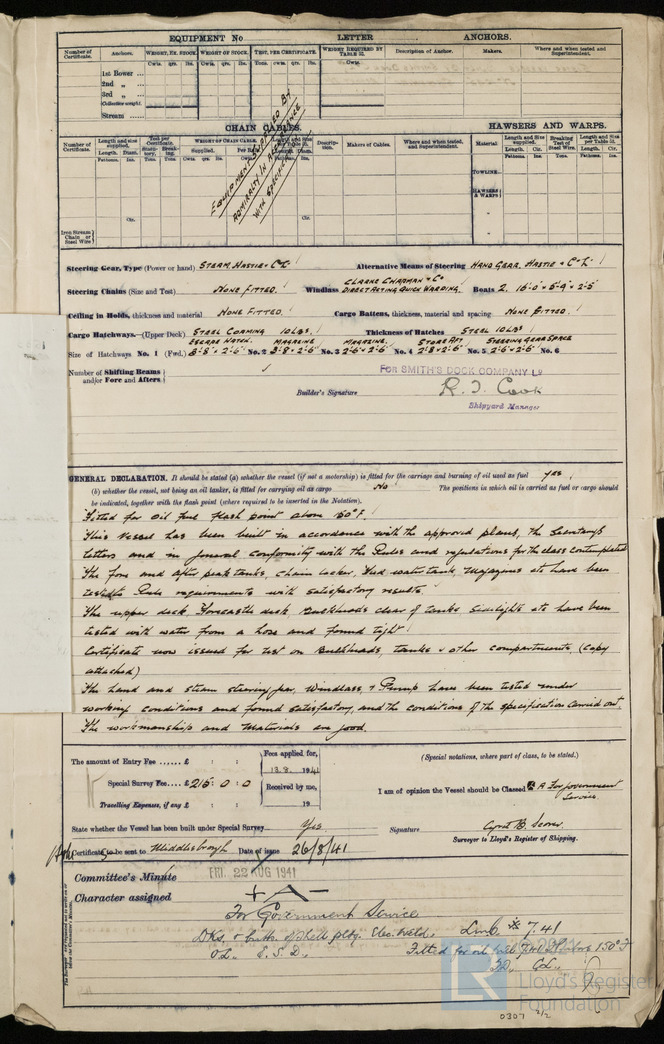 EQUIPMENT No LETTER ANCHORS.
Number of Certificate. Anchors. WEIGHT, EX. STOCK. WEIGHT OF STOCK. TEST, PER CERTIFICATE. WEIGHT REQUIRED BY TABLE 53. Description of Anchor. Makers. Where and when tested and Superintendent.
Cwts. qrs. lbs. Cwts. qrs. lbs. Tons. cwts. qrs. lbs. Cwts.
1st Bower ...
2nd „ ...
3rd „ ...
Collective weight.
Stream ...
EQUIPMENT SUPPLIED BY
ADMIRALTY IN ACCORDANCE
WITH SPECIFICATION
CHAIN CABLES. HAWSERS AND WARPS.
Number of Certificate. Length and size supplied. Test per Certificate. WEIGHT OF CHAIN CABLE. Description. Makers of Cables. Where and when tested, and Superintendent. Material Length and Size supplied. Breaking Test of Steel Wire. Length and Size per Table 53.
Fathoms. Ins. Tons. Tons. Cwts. qrs. lbs. Fathoms. Ins. Tons. Fathoms. Ins.
TOWLINE
HAWSERS & WARPS
Cir. Cir.
Iron Stream Chain or Steel Wire
Steering Gear, Type (Power or hand) STEAM, HASTIE & Co Ld Alternative Means of Steering HAND GEAR, HASTIE & Co Ld
Steering Chains (Size and Test) NONE FITTED. Windlass CLARKE CHAPMAN & Co DIRECT ACTING QUICK WARPING. Boats 2. 16'-0" x 5'-9" x 2'-5"
Ceiling in Holds, thickness and material NONE FITTED. Cargo Battens, thickness, material and spacing NONE FITTED.
Cargo Hatchways.—(Upper Deck) STEEL COAMING 10 LBS. Thickness of Hatches STEEL 10 LBS
ESCAPE HATCH. MAGAZINE MAGAZINE. STORE AFT STEERING GEAR SPACE
Size of Hatchways No. 1 (Fwd.) 3'-8" x 2'-6" No. 2 3'-8" x 2'-6" No. 3 2'-6" x 2'-6" No. 4 2'-8" x 2'-6" No. 5 2'-6" x 2'-6" No. 6
Number of Shifting Beams and/or Fore and Afters
FOR SMITH'S DOCK COMPANY Ld
Builder's Signature R. J. Cook
Shipyard Manager
GENERAL DECLARATION. It should be stated (a) whether the vessel (if not a motorship) is fitted for the carriage and burning of oil used as fuel yes
(b) whether the vessel, not being an oil tanker, is fitted for carrying oil as cargo No The positions in which oil is carried as fuel or cargo should
be indicated, together with the flash point (where required to be inserted in the Notation).
Fitted for oil fuel flash point above 150°F.
This Vessel has been built in accordance with the approved plans, the Secretary's
letters and in general conformity with the Rules and regulations for the class contemplated
The fore and after peak tanks, chain locker, feed water tank, Magazines etc have been
tested to Rule requirements with satisfactory results.
The upper deck, Forecastle deck, Bulkheads clear of tanks Sidelights etc have been
tested with water from a hose and found tight.
Certificate now issued for test on Bulkheads, tanks & other compartments. (Copy
attached)
The hand and steam steering gear, Windlass, & Pump have been tested under
working conditions and found satisfactory, and the conditions of the specification carried out.
The workmanship and Materials are good.
The amount of Entry Fee ...... £ : :
Special Survey Fee .... £ 215 : 0 : 0
Travelling Expenses, if any £ : :
Fees applied for,
13.8. 1941
Received by me,
19
(Special notations, where part of class, to be stated.)
I am of opinion the Vessel should be Classed A For Government
Service.
State whether the Vessel has been built under Special Survey Yes Signature
Surveyor to Lloyd's Register of Shipping.
Certificate to be sent to Middlesbrough Date of issue 26/8/41
Committee's Minute FRI. 22 AUG 1941
Character assigned + A —
For Government Service
Dks. & butts of shell pltg. Elec. Weld. Lmb * 7.41
O.L. E.S.D. Fitted for oil fuel 7.41 F.P. above 150°F
T.D. C.L.
LR
Lloyd's Register
Foundation
0307 2/2